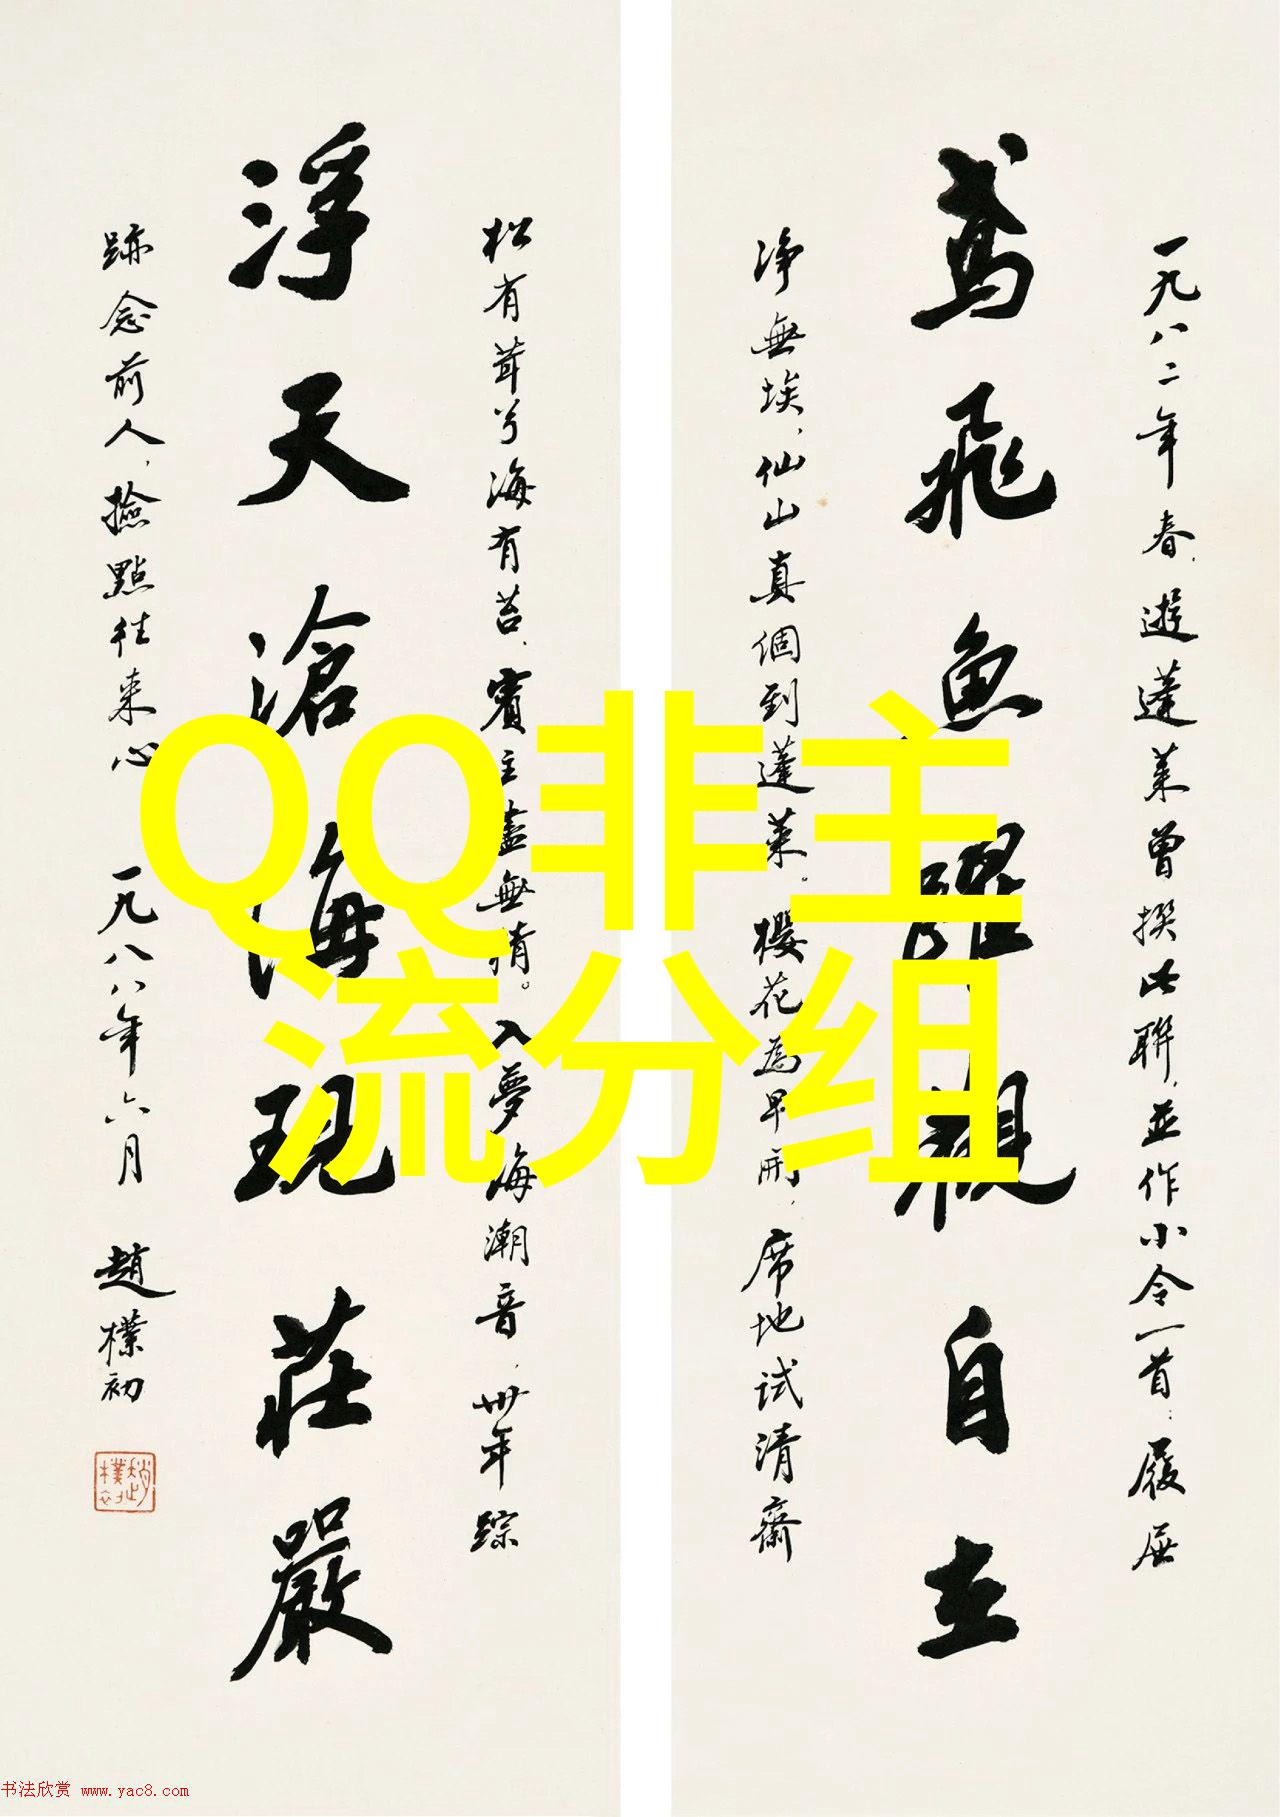 一九八二年春，遊蓬萊曾撰此聯，並作小令一首：履屐
鳶飛魚躍觀自在
净無埃，仙山真個到蓬萊。櫻花為早開，席地試清齋
松有茸兮海有苔，賓主盡無猜。入夢海潮音，卅年踪
浮天滄海現莊嚴
跡念前人，撿點往来心 一九八八年六月 趙樸初
趙樸初
QQ非主
流分组
书法欣赏 www.yac8.com